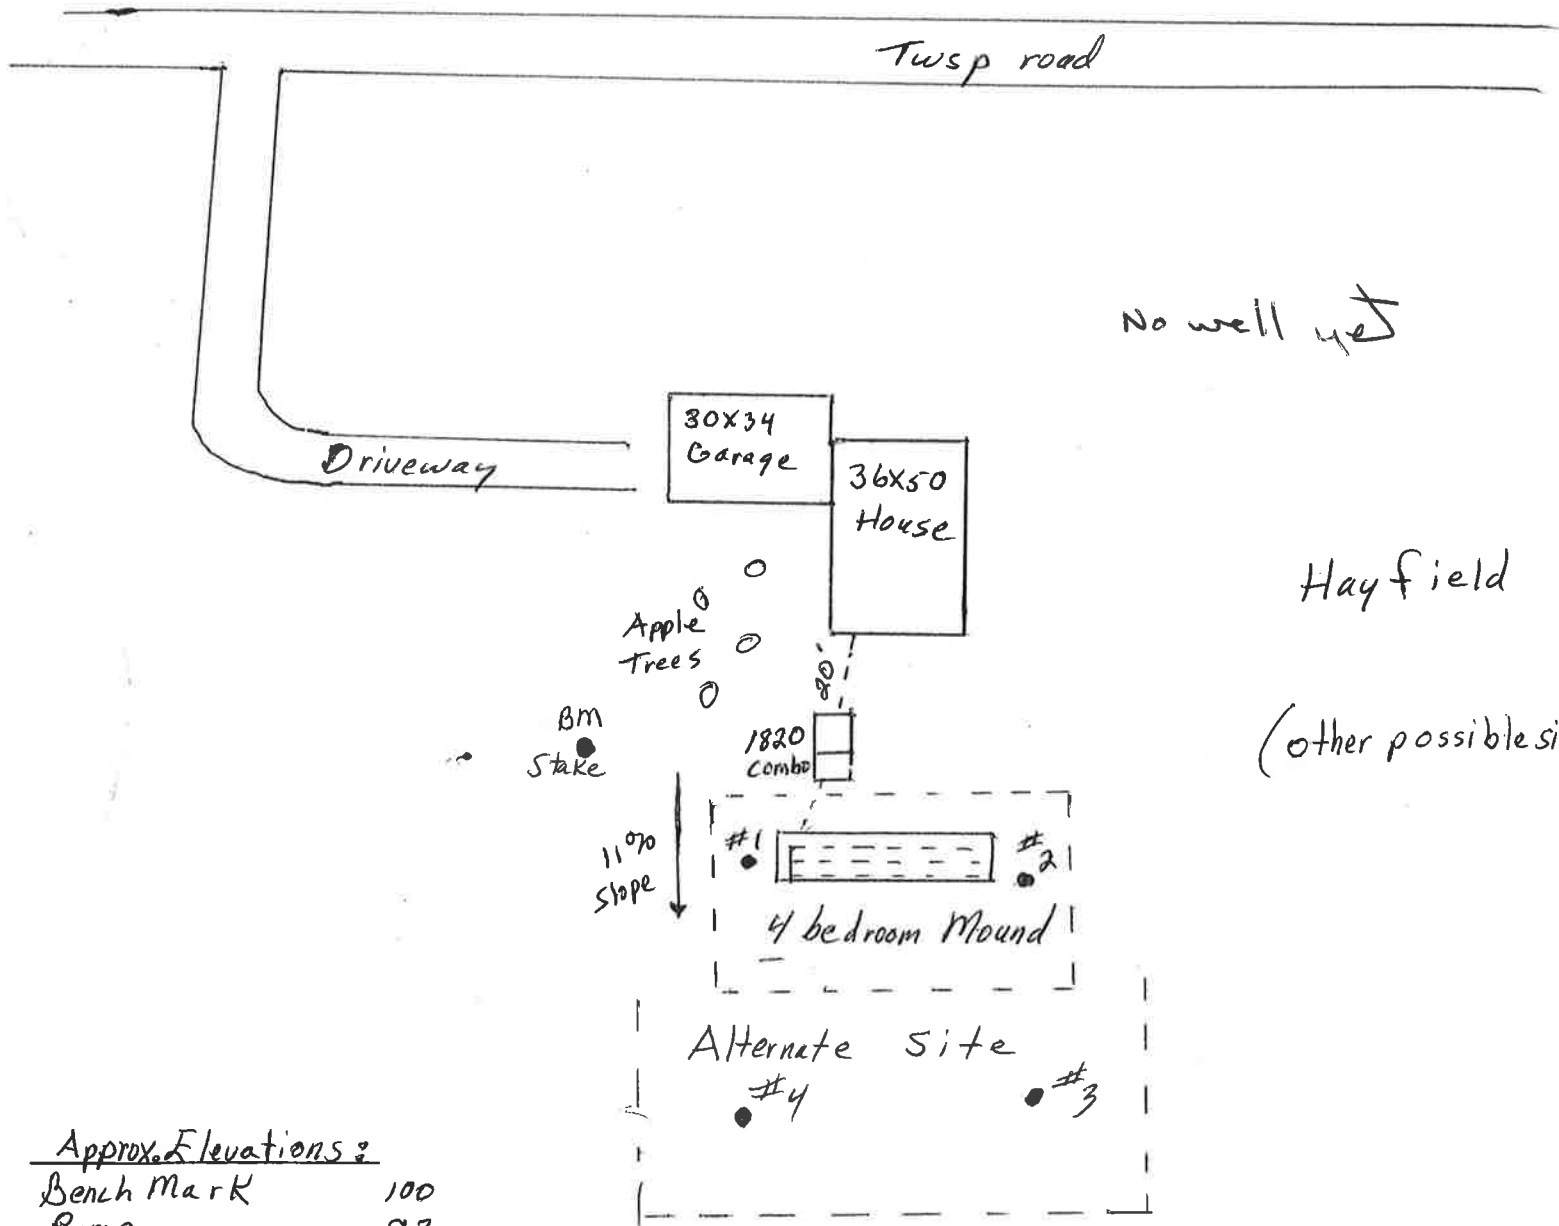 Twsp road
No well yet
30X34
Garage
36X50
House
Driveway
Hayfield
Apple
Trees
20'
BM
Stake
1820
Combo
(other possible si
11%
Slope
#1
#2
4 bedroom Mound
Alternate Site
#4
#3
Approx. Elevations:
Bench Mark 100